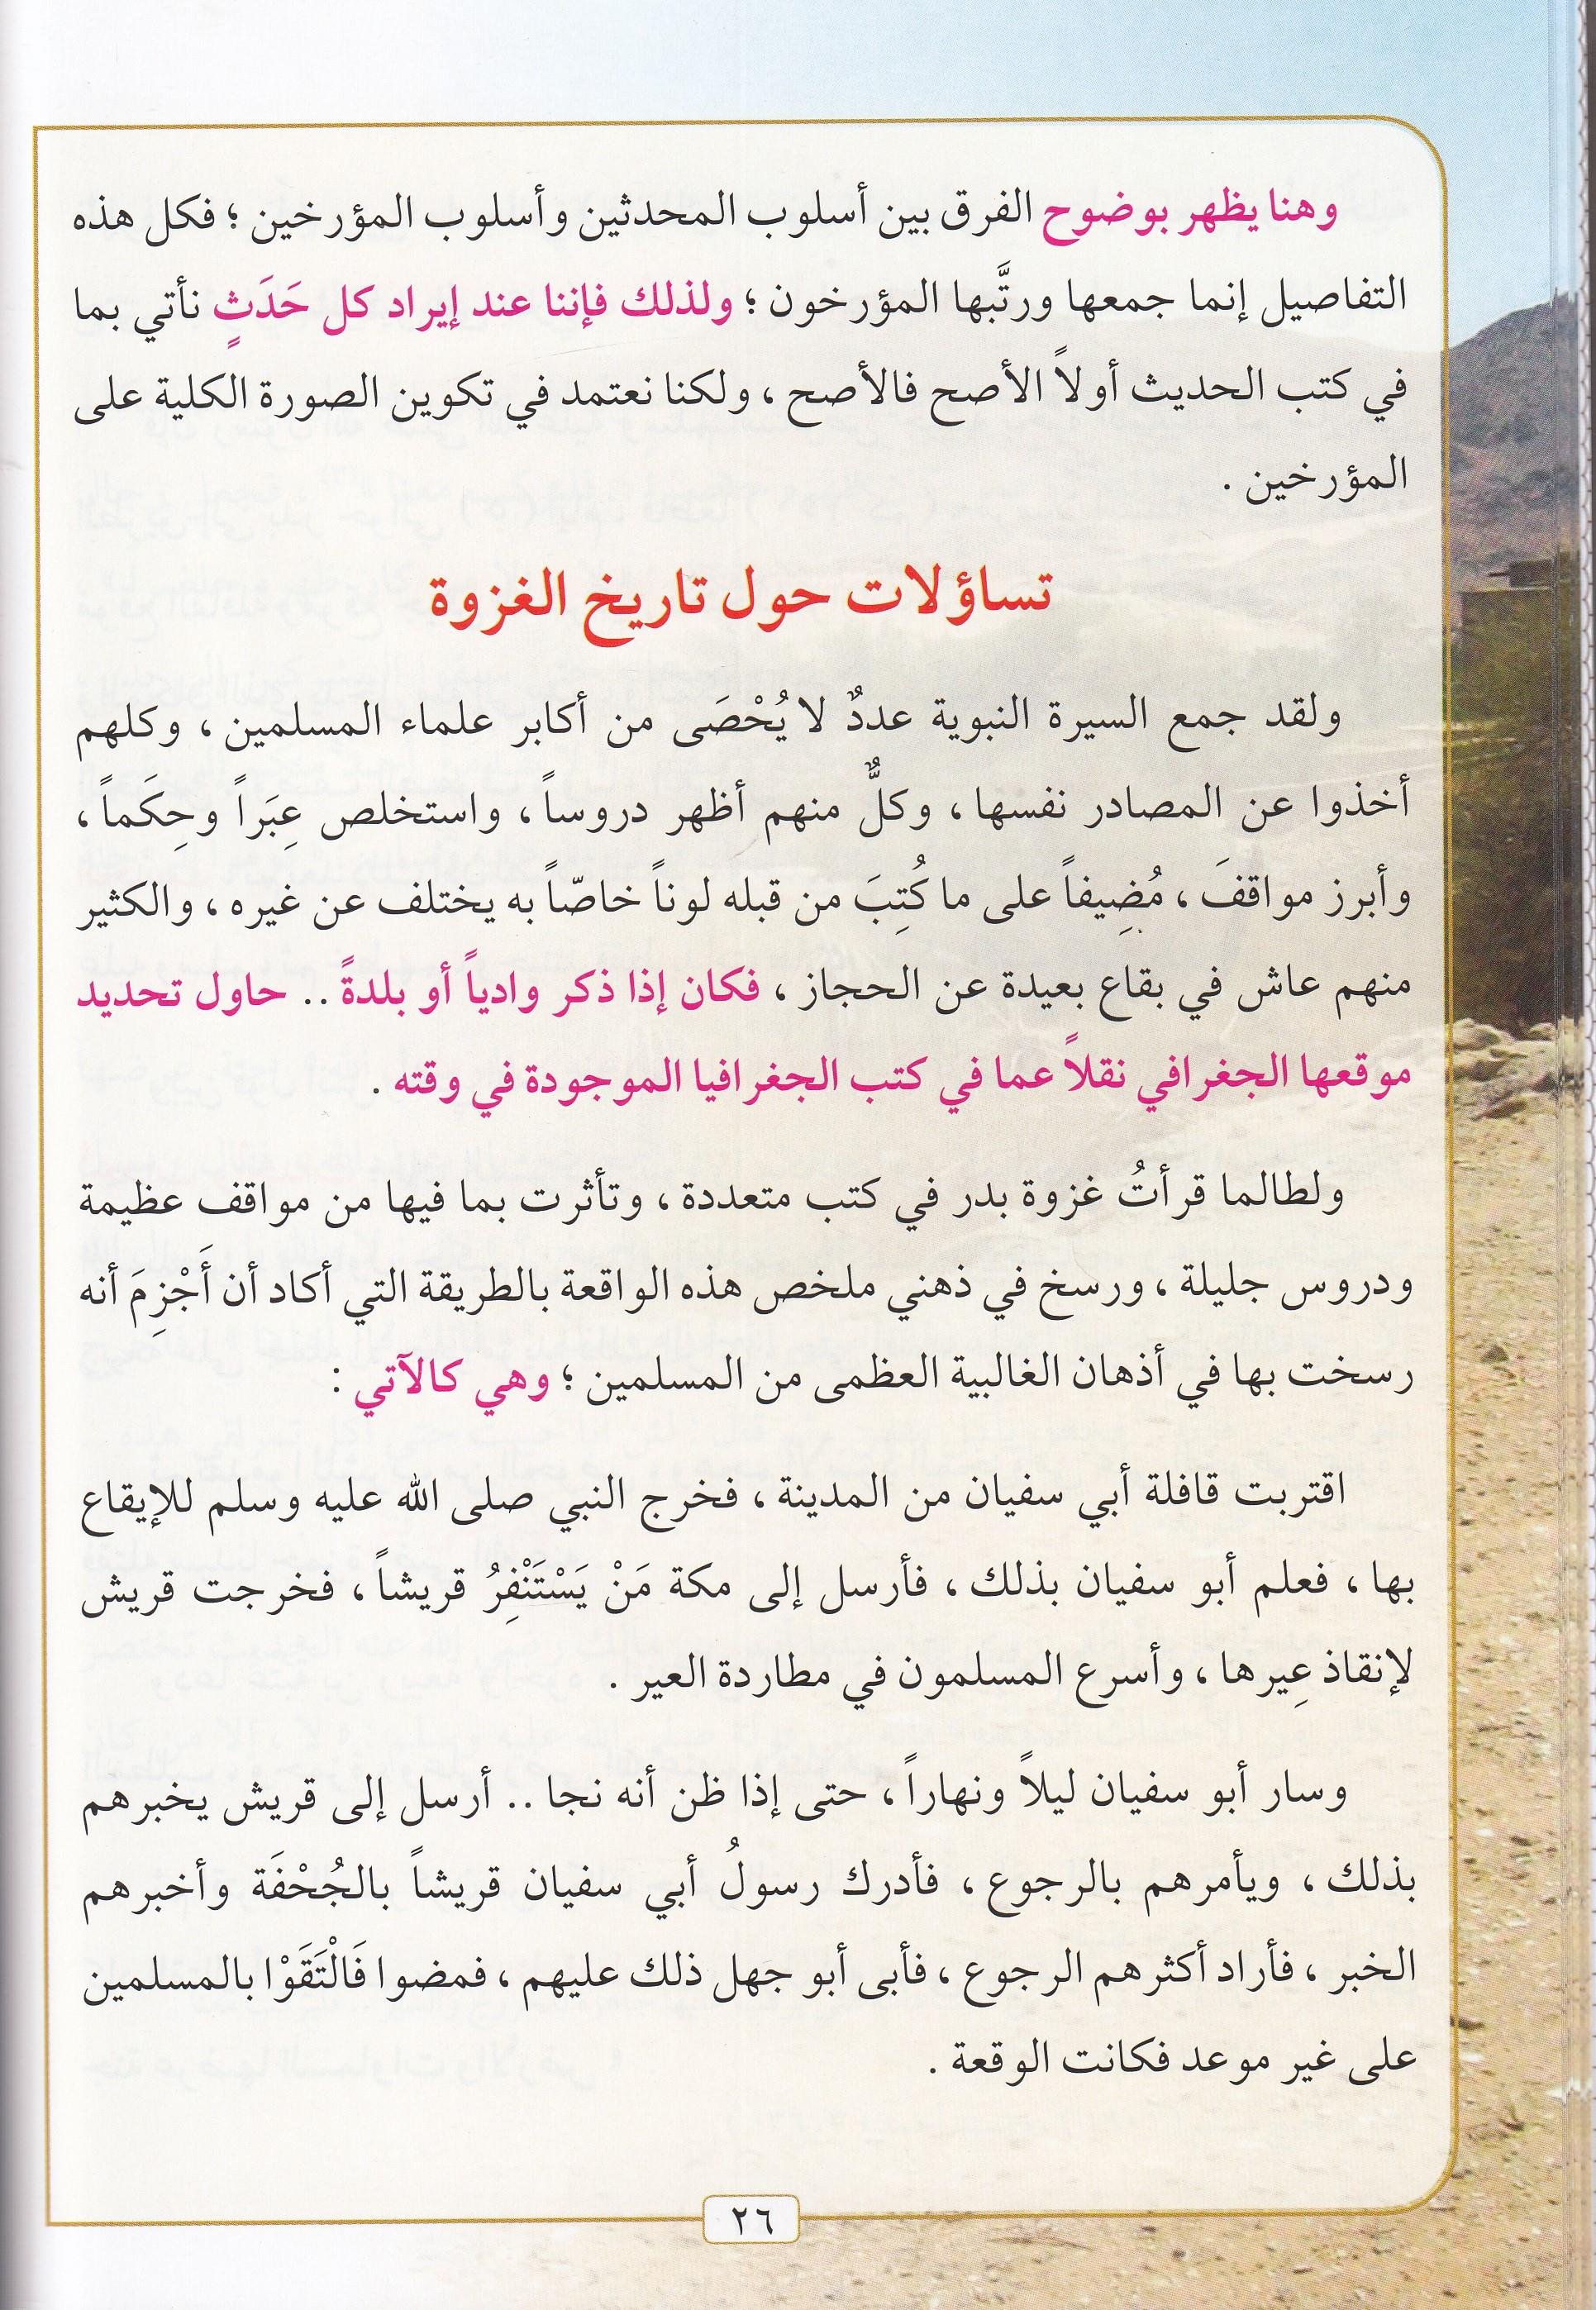 وهنا يظهر بوضوح الفرق بين أسلوب المحدثين وأسلوب المؤرخين ؛ فكل هذه
التفاصيل إنما جمعها ورتَّبها المؤرخون ؛ ولذلك فإننا عند إيراد كل حَدَثٍ نأتي بما
في كتب الحديث أولاً الأصح فالأصح ، ولكنا نعتمد في تكوين الصورة الكلية على
المؤرخين .
تساؤلات حول تاريخ الغزوة
ولقد جمع السيرة النبوية عددٌ لا يُحْصَى من أكابر علماء المسلمين ، وكلهم
أخذوا عن المصادر نفسها ، وكلٌّ منهم أظهر دروساً ، واستخلص عِبَراً وحِكَماً ،
وأبرز مواقفَ ، مُضِيفاً على ما كُتِبَ من قبله لوناً خاصّاً به يختلف عن غيره ، والكثير
منهم عاش في بقاع بعيدة عن الحجاز ، فكان إذا ذكر وادياً أو بلدةً .. حاول تحديد
موقعها الجغرافي نقلاً عما في كتب الجغرافيا الموجودة في وقته .
ولطالما قرأتُ غزوة بدر في كتب متعددة ، وتأثرت بما فيها من مواقف عظيمة
ودروس جليلة ، ورسخ في ذهني ملخص هذه الواقعة بالطريقة التي أكاد أن أَجْزِمَ أنه
رسخت بها في أذهان الغالبية العظمى من المسلمين ؛ وهي كالآتي :
اقتربت قافلة أبي سفيان من المدينة ، فخرج النبي صلى الله عليه وسلم للإيقاع
بها ، فعلم أبو سفيان بذلك ، فأرسل إلى مكة مَنْ يَسْتَنْفِرُ قريشاً ، فخرجت قريش
لإنقاذ عِيرها ، وأسرع المسلمون في مطاردة العير .
وسار أبو سفيان ليلاً ونهاراً ، حتى إذا ظن أنه نجا .. أرسل إلى قريش يخبرهم
بذلك ، ويأمرهم بالرجوع ، فأدرك رسولُ أبي سفيان قريشاً بالجُحْفَة وأخبرهم
الخبر ، فأراد أكثرهم الرجوع ، فأبى أبو جهل ذلك عليهم ، فمضوا فَالْتَقَوْا بالمسلمين
على غير موعد فكانت الوقعة .
٢٦